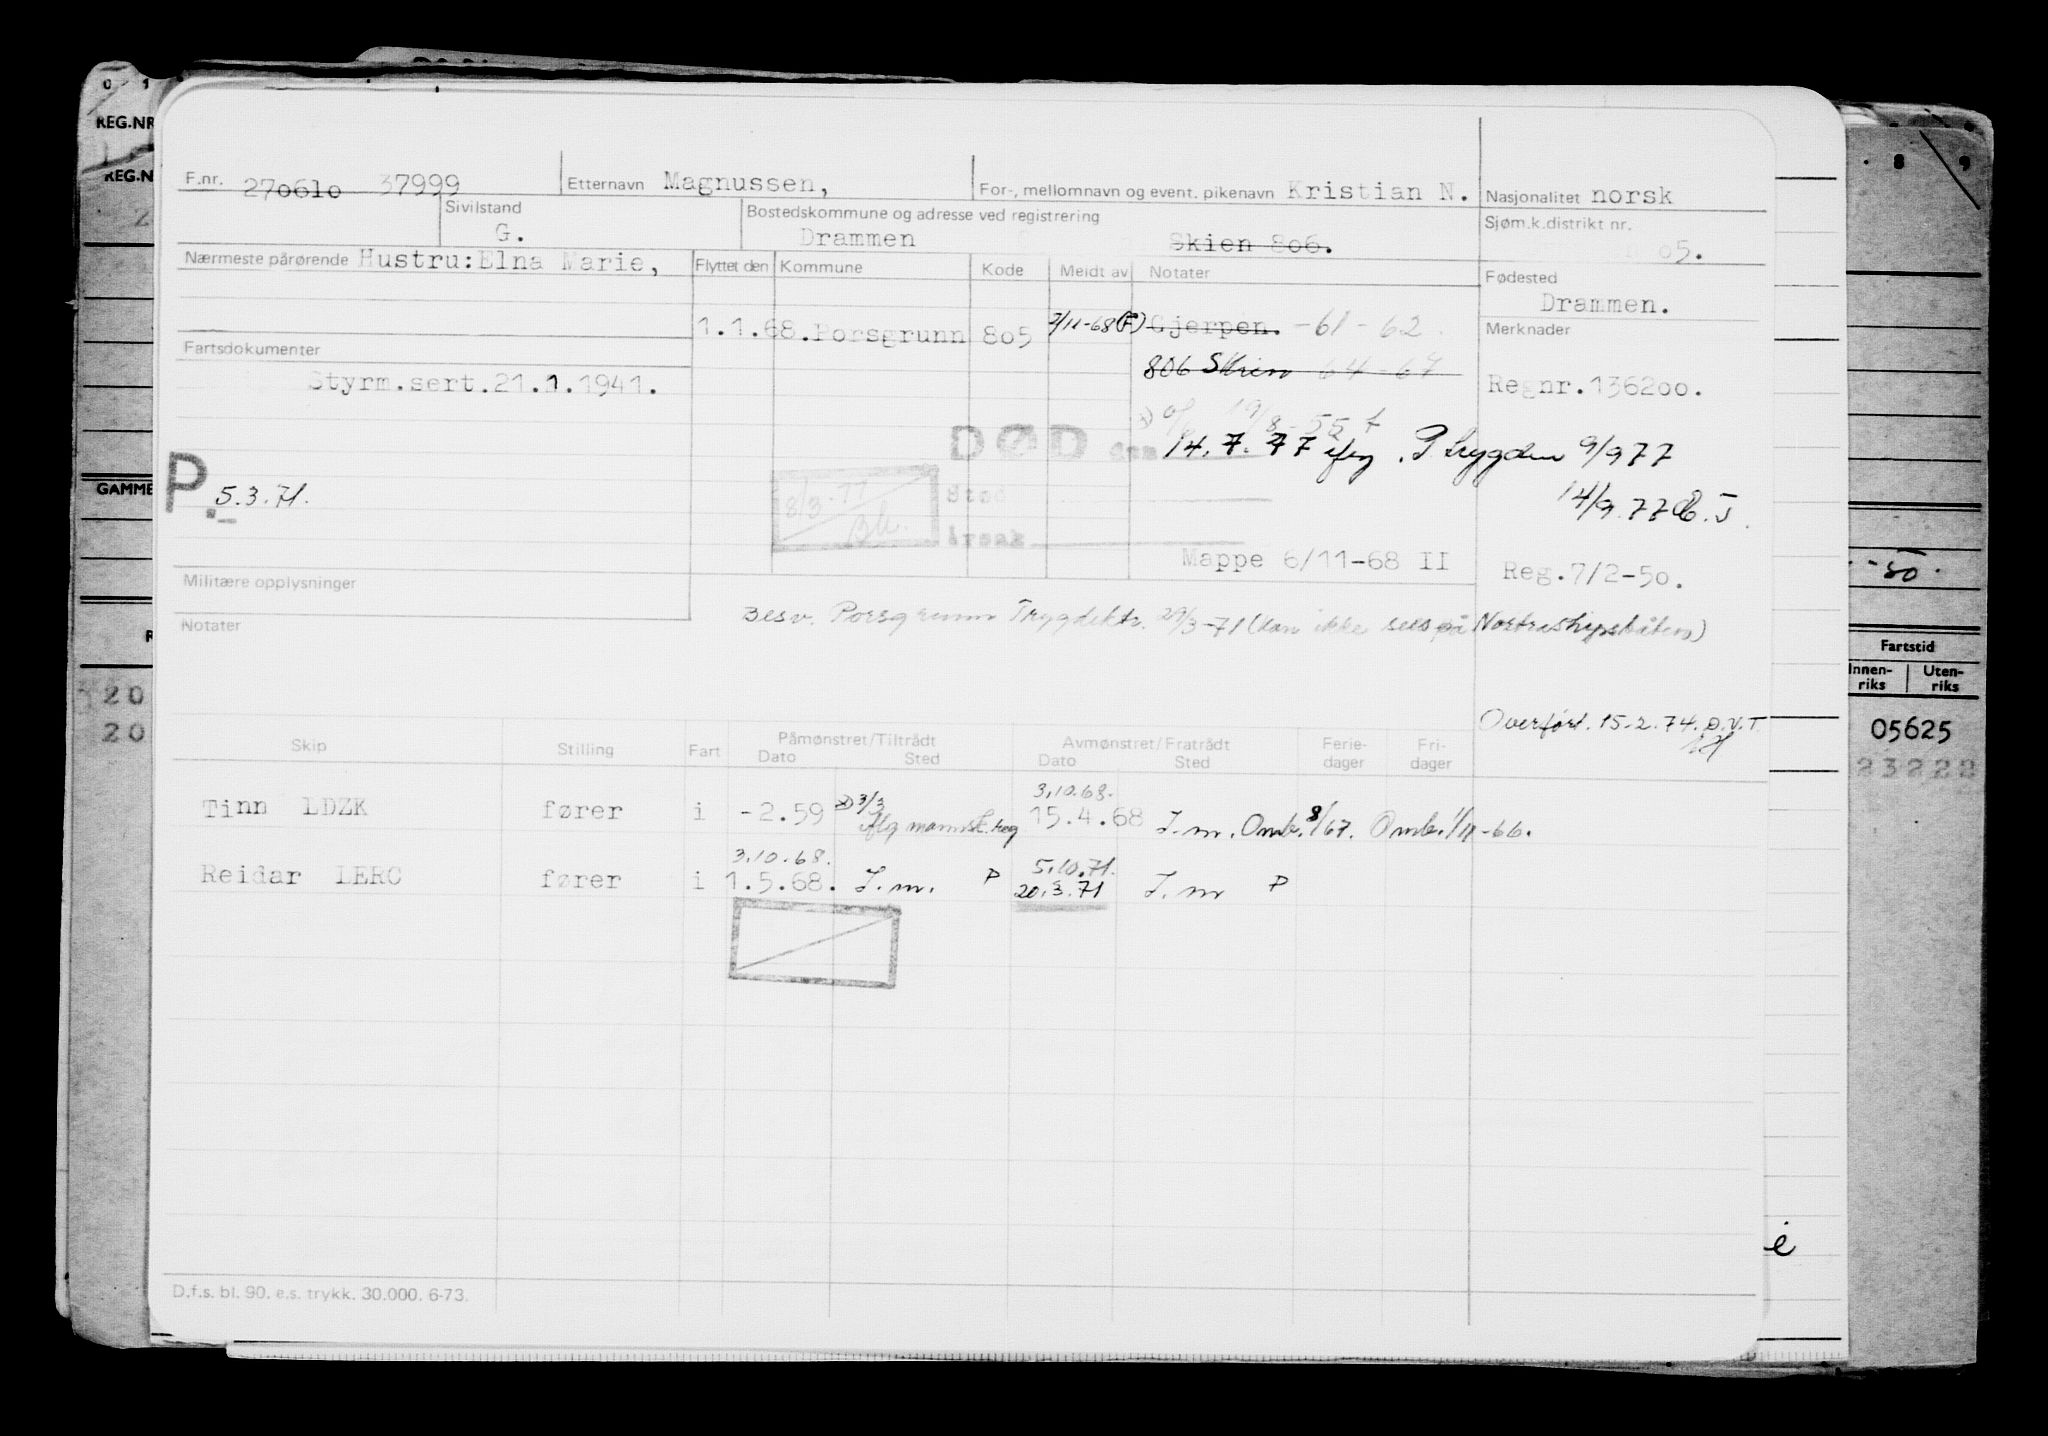 F.nr. 270610 37999 Etternavn Magnussen, For-, mellomnavn og event. pikenavn Kristian N. Nasjonalitet norsk
Sivilstand G. Bostedskommune og adresse ved registrering Drammen Skien 806. Sjøm.k.distrikt nr. 05.
Nærmeste pårørende Hustru: Elna Marie, Flyttet den Kommune Kode Meldt av Notater Fødested
Drammen.
1.1.68. Porsgrunn 805 2/11-68 (F) Gjerpen. -61-62 Merknader
Fartsdokumenter 806 Skien 64-67
Styrm.sert.21.1.1941. Regnr.136200.
19/8-55
DØD den 14.7.77 iflg. P.trygden 9/9 77
P. 5.3.71. 8/3-77 Sted 14/9.77
Årsak
Mappe 6/11-68 II Reg.7/2-50.
Militære opplysninger
Besv. Porsgrunn Trygdektr. 29/3-71 (kan ikke sees på Nortrashipsbåten)
Notater
Overført. 15-2.74.
Skip Stilling Fart Påmønstret/Tiltrådt Dato Sted Avmønstret/Fratrådt Dato Sted Ferie-dager Fri-dager
3.10.68.
Tinn LDZK fører i -2.59 x) 3/3 iflg mannsk.reg 15.4.68 I.m. Omb. 8/67. Omb. 1/11-66.
3.10.68. 5.10.71.
Reidar LERC fører i 1.5.68. I.m. P 20.3.71 I.m P
D.f.s. bl. 90. e.s. trykk. 30.000. 6-73.
0 1
REG.NR
REG.N
GAMME
20
20
8 9
-50.
Fartstid
Innen-riks Uten-riks
05625
23222
e